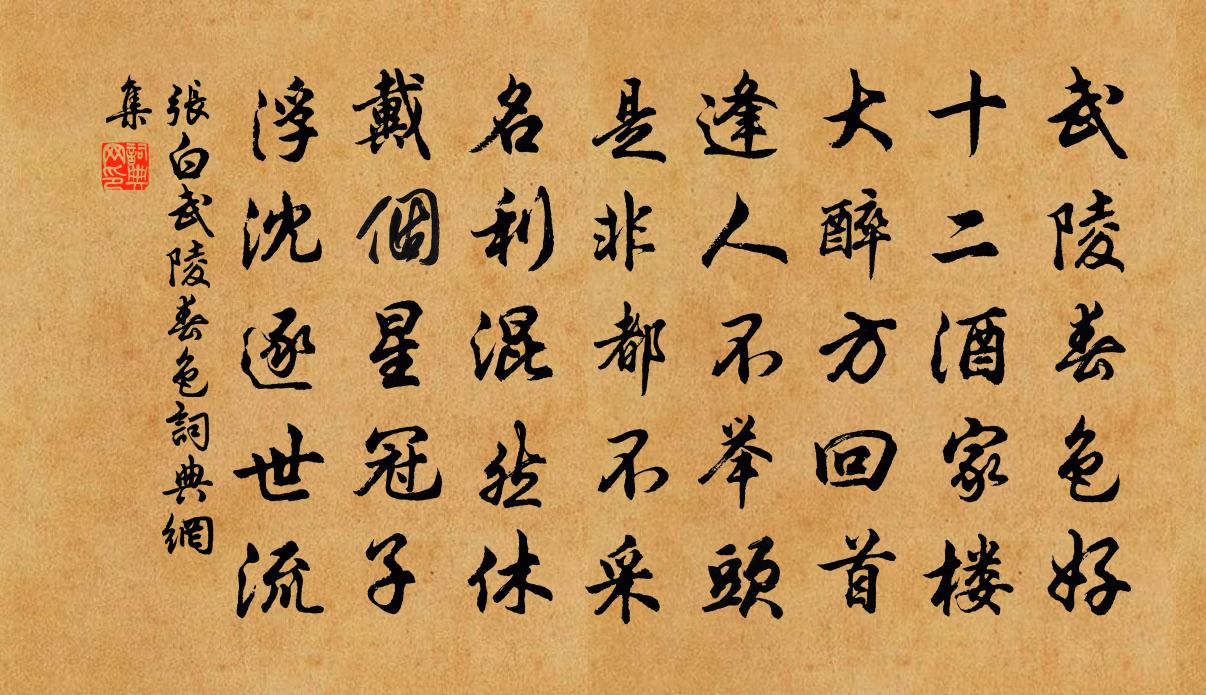 武陵春色好
十二酒家楼
大醉方回首
逢人不举頭
是非都不采
名利混然休
戴個星冠子
浮沈逐世流
張白武陵春色詞典網
集
詞典
网印